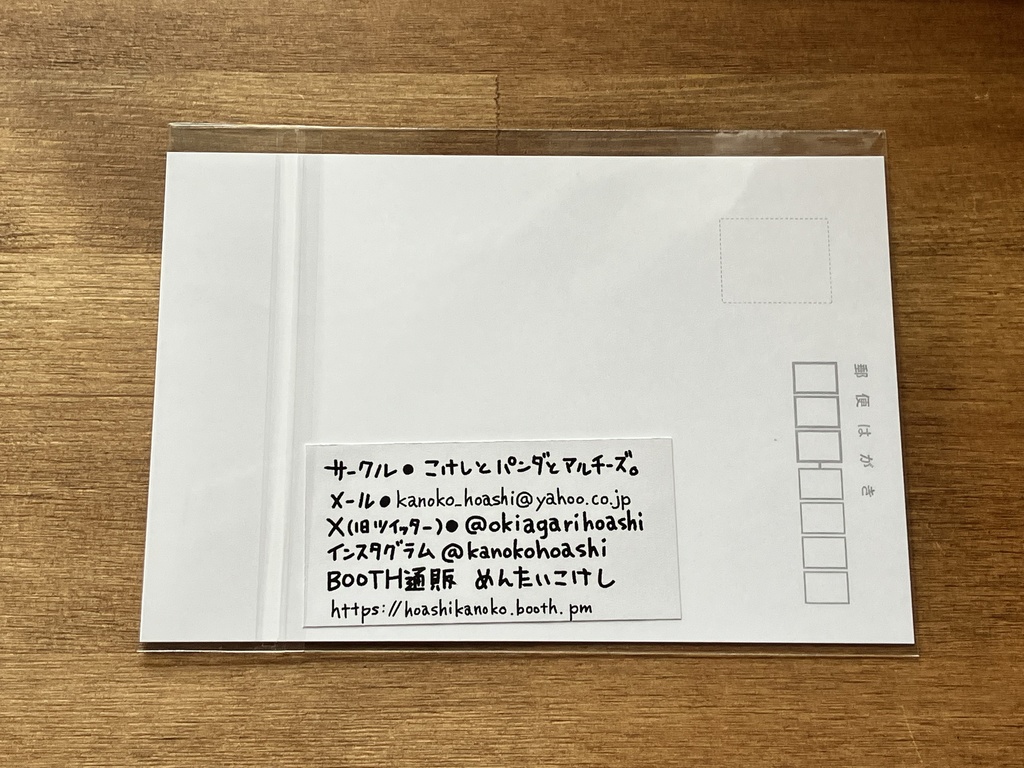 郵便はがき
サークル●こけしとパンダとアルチーズ。
メール●kanoko_hoashi@yahoo.co.jp
X(旧ツイッター)●@okiagarihoashi
インスタグラム @kanokohoashi
BOOTH通販 めんたいこけし
https://hoashikanoko.booth.pm